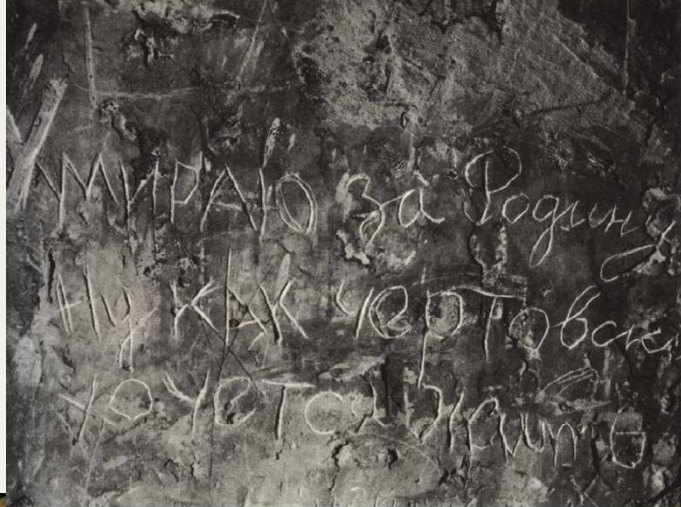 Умираю за Родину
Ну как чертовск
хочется жить